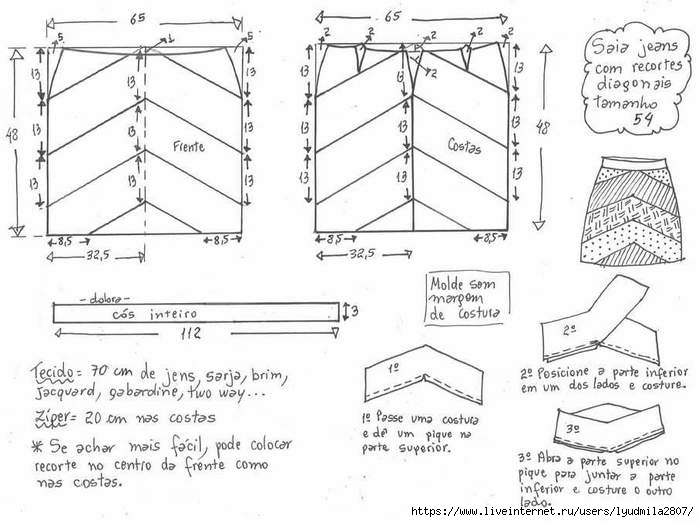 65
5
1
5
13
13
13
13
13
13
13
13
13
48
Frente
8,5
8,5
32,5
65
2
2
2
2
2
13
13
13
13
13
13
13
13
13
48
Costas
8,5
8,5
32,5
Saia jeans
com recortes
diagonais
tamanho
54
- dobra -
cós inteiro
3
112
Molde sem
margem
de costura
Tecido = 70 cm de jens, sarja, brim,
jacquard, gabardine, two way...
Zíper = 20 cm nas costas
* Se achar mais fácil, pode colocar
recorte no centro da frente como
nas costas.
1º
1º Passe uma costura
e dê um pique na
parte superior.
2º
2º Posicione a parte inferior
em um dos lados e costure.
3º
3º Abra a parte superior no
pique para juntar a parte
inferior e costure o outro
lado.
https://www.liveinternet.ru/users/lyudmila2807/